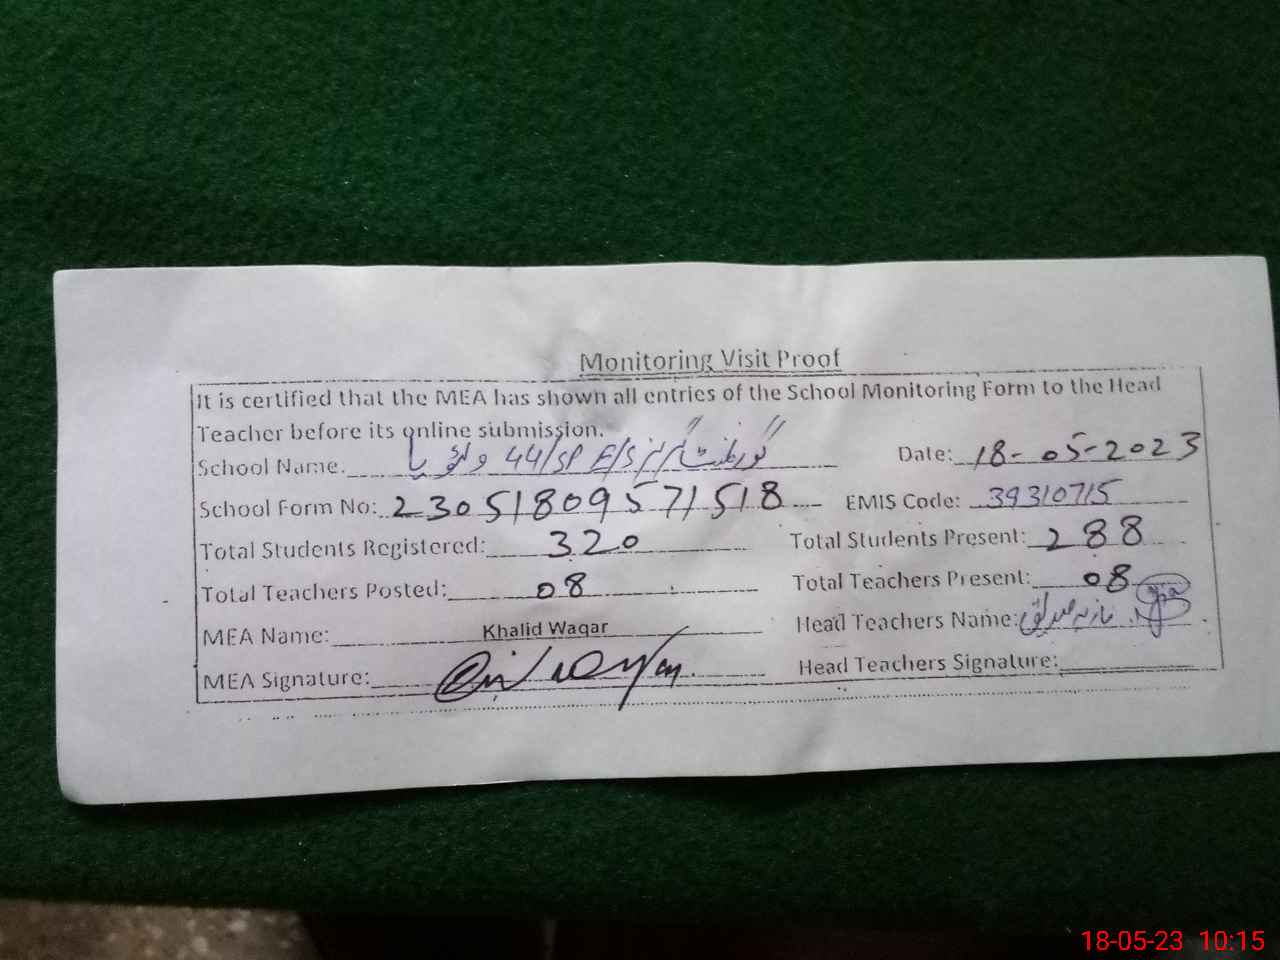 Monitoring Visit Proof
It is certified that the MEA has shown all entries of the School Monitoring Form to the Head
Teacher before its online submission.
School Name: گورنمنٹ گرلز E/S 44/SP Date: 18-05-2023
School Form No: 23051809571518 EMIS Code: 39310715
Total Students Registered: 320 Total Students Present: 288
Total Teachers Posted: 08 Total Teachers Present: 08
MEA Name: Khalid Waqar Head Teachers Name: نازیہ صدیق
MEA Signature: Head Teachers Signature:
18-05-23 10:15